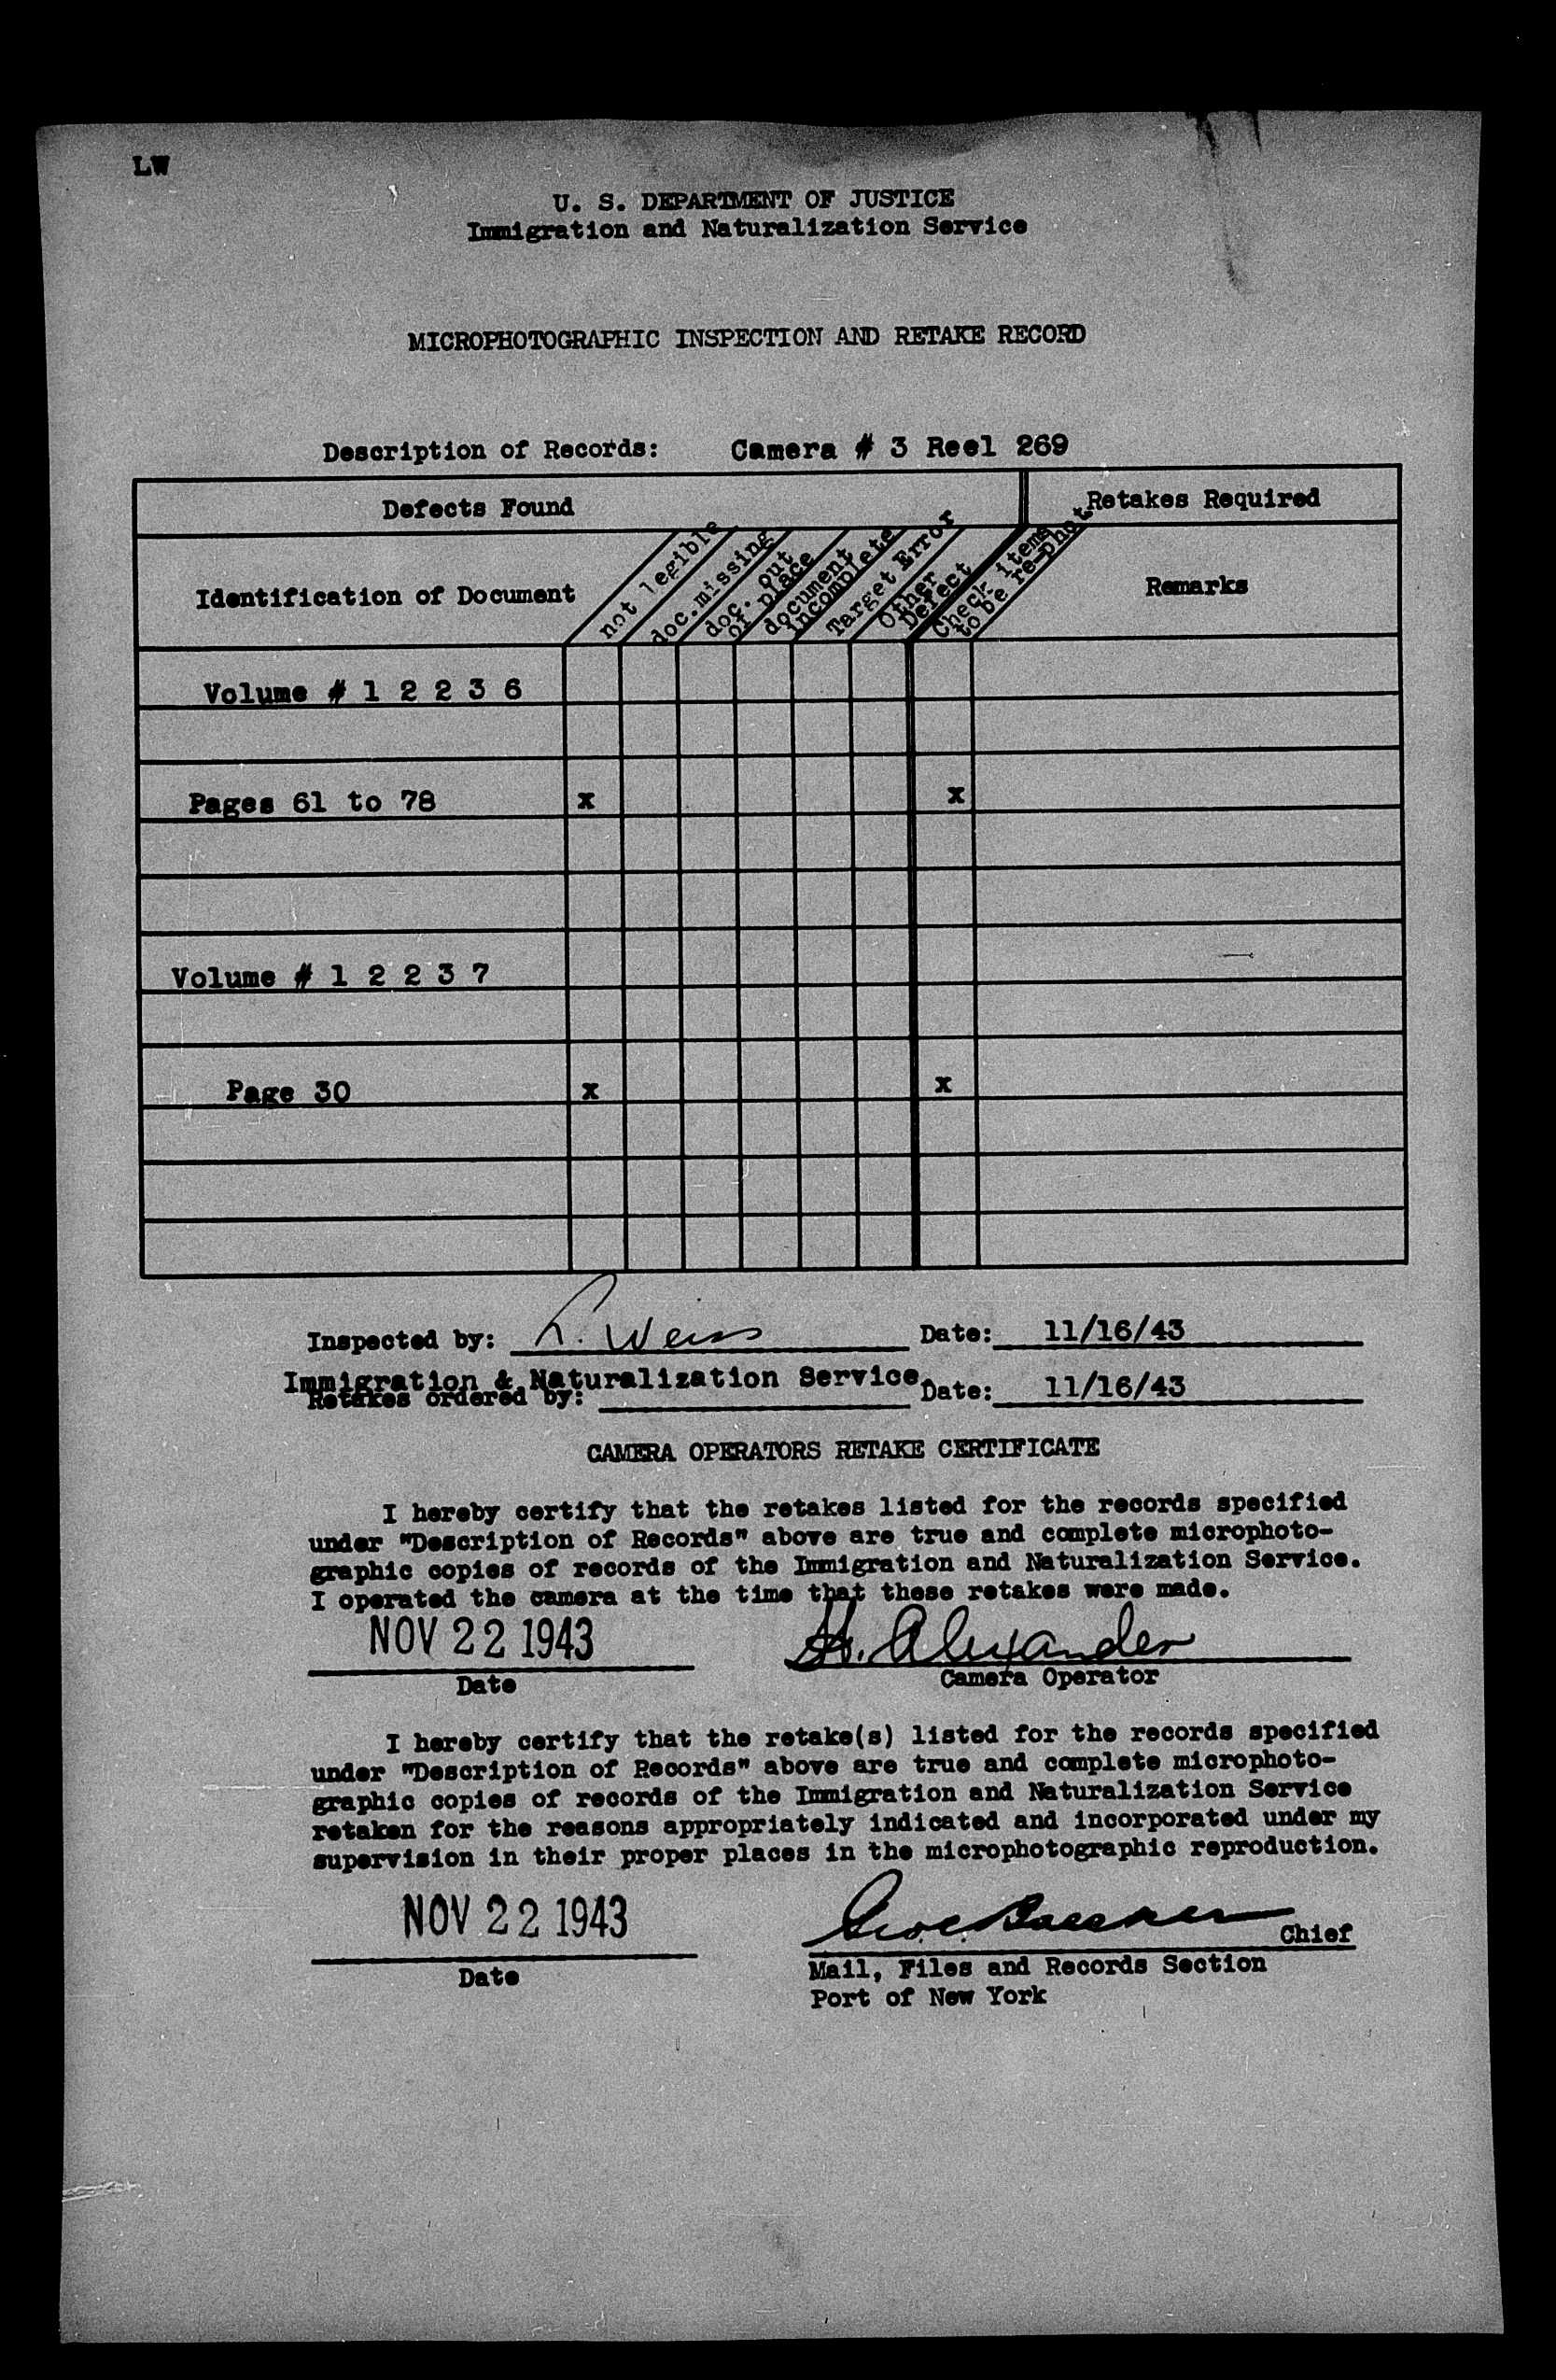 LW
U. S. DEPARTMENT OF JUSTICE
Immigration and Naturalization Service
MICROPHOTOGRAPHIC INSPECTION AND RETAKE RECORD
Description of Records: Camera # 3 Reel 269
Defects Found Retakes Required
Identification of Document not legible doc.missing doc. out of place document incomplete Target Error Other Defect Check items to be re-phot Remarks
Volume # 1 2 2 3 6
Pages 61 to 78 x x
Volume # 1 2 2 3 7
Page 30 x x
Inspected by: L. Weiss Date: 11/16/43
Immigration & Naturalization Service.
Retakes ordered by: Date: 11/16/43
CAMERA OPERATORS RETAKE CERTIFICATE
I hereby certify that the retakes listed for the records specified
under "Description of Records" above are true and complete microphoto-
graphic copies of records of the Immigration and Naturalization Service.
I operated the camera at the time that these retakes were made.
NOV 22 1943 H. Alexander
Date Camera Operator
I hereby certify that the retake(s) listed for the records specified
under "Description of Records" above are true and complete microphoto-
graphic copies of records of the Immigration and Naturalization Service
retaken for the reasons appropriately indicated and incorporated under my
supervision in their proper places in the microphotographic reproduction.
NOV 22 1943 Chief
Date Mail, Files and Records Section
Port of New York